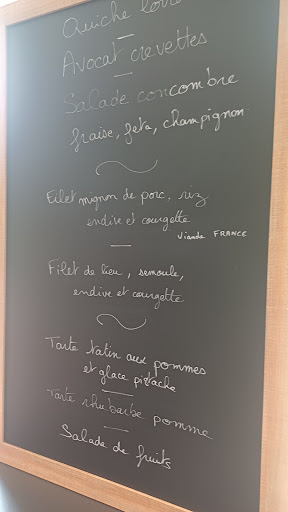 Quiche lorraine
Avocat crevettes
Salade concombre
fraise, feta, champignon
Filet mignon de porc, riz
endive et courgette
Viande FRANCE
Filet de lieu, semoule,
endive et courgette
Tarte tatin aux pommes
et glace pistache
Tarte rhubarbe pomme
Salade de fruits